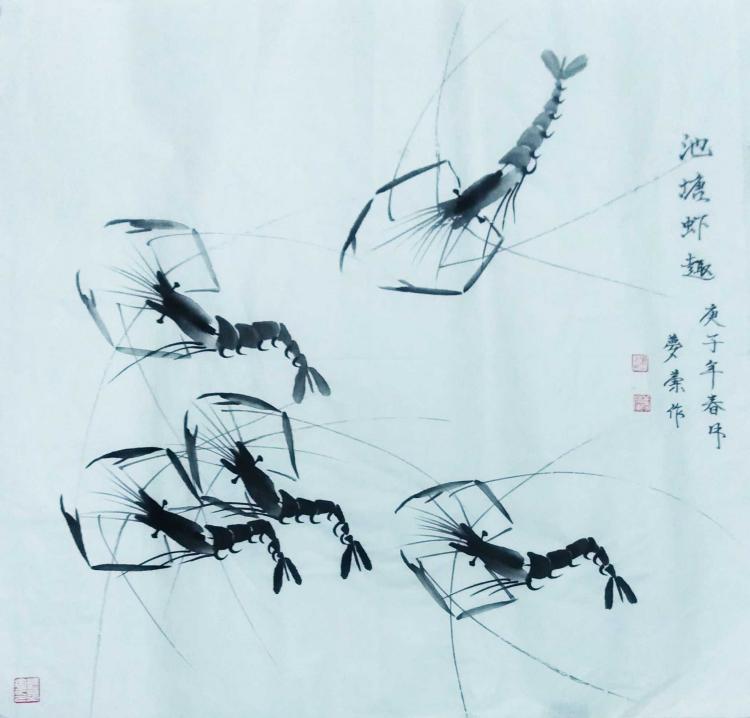 池塘虾趣
庚子年春
梦荣作